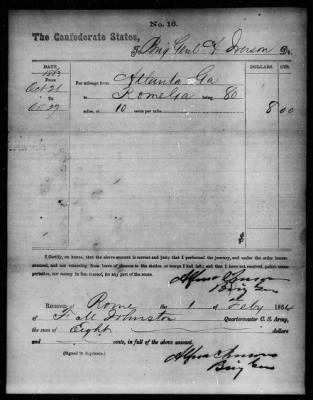 No. 16.
The Confederate States,
To Brig Genl A Iverson Dr.
DATE. DOLLS. CTS.
1863
Oct 26 For mileage from Atlanta Ga
to Rome Ga being 80
Oct 27 miles, at 10 cents per mile 8 00
I Certify, on honor, that the above account is correct and just; that I performed the journey, and under the order hereto
annexed, and not returning from leave of absence to the station or troops I had left; and that I have not received public trans-
portation, nor money in lieu thereof, for any part of the route.
Alfred Iverson
Brig Gen
Received at Rome the 1 of Feby 1864
of F. M Johnston Quartermaster C. S. Army,
the sum of Eight dollars
and cents, in full of the above account.
(Signed in duplicate.)
Alfred Iverson
Brig Gen